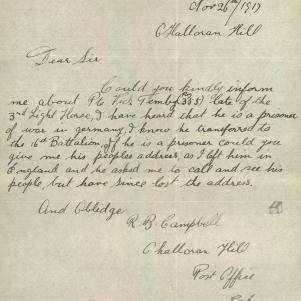 Nov 26th 1917
O'Halloran Hill
Dear Sir
Could you kindly inform
me about Pte Vick Temby (335) late of the
3rd Light Horse, I have heard that he is a prisoner
of war in germany, I know he tranfered to
the 16th Battalion, If he is a prisoner could you
give me his peoples address, as I left him in
England and he asked me to call and see his
people, but have since lost the address.
And Oblidge
R B Campbell
O'halloran Hill
Post Office